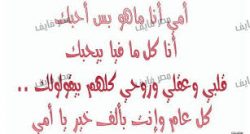 أمي أنا ماهو بس أحبك
أنا كل ما فيا بيحبك
قلبي وعقلي وروحي كلهم بيقولولك ..
كل عام وانت بألف خير يا أمي